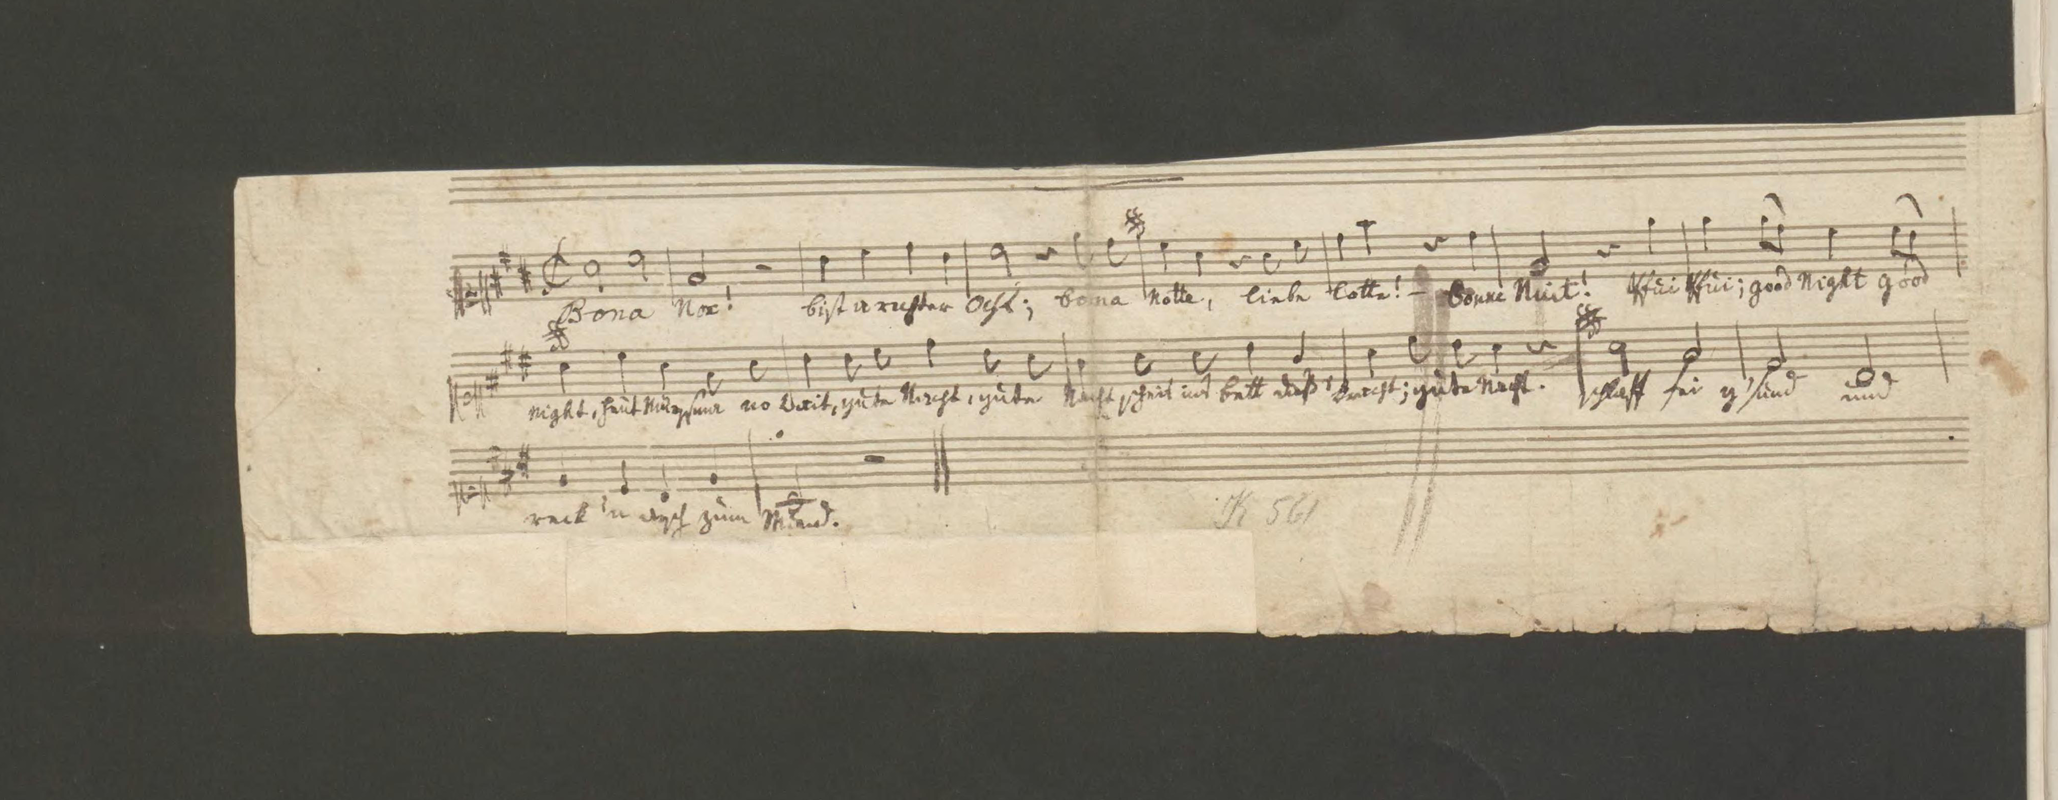 Bona Nox! bist a rechter Ochs; bona Notte, liebe Lotte! bonne Nuit! pfui pfui; good Night good
night, heut müeßma no weit, gute Nacht, gute Nacht scheis ins bett daß' kracht; gute Nacht. schlaff fei g'sund und
reck 'n arsch zum Mund.
K 561